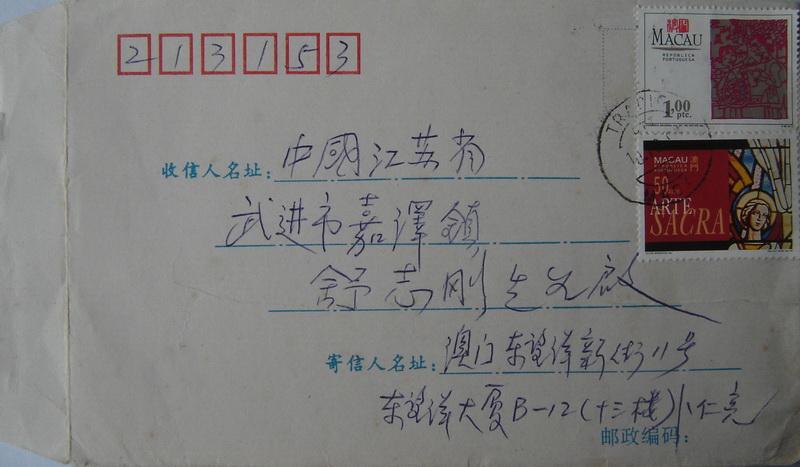 213153
MACAU
REPÚBLICA
PORTUGUESA
1,00
ptc.
MACAU
REPÚBLICA
PORTUGUESA
50
ARTE
SACRA
收信人名址：中國江苏省
武进市嘉泽鎮
舒志刚先生啟
寄信人名址：澳门东望洋新街11号
东望洋大厦B-12(十三楼)
邮政编码：